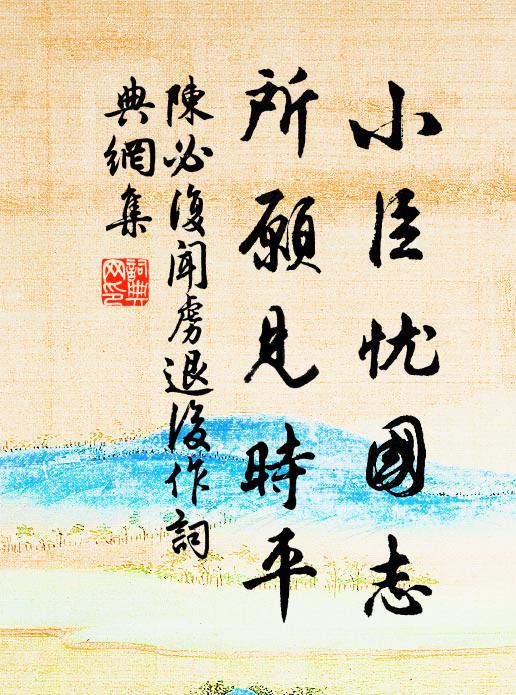 小臣忧國志
所願見時平
陳必復聞虜退後作詞
典網集
詞典
网印